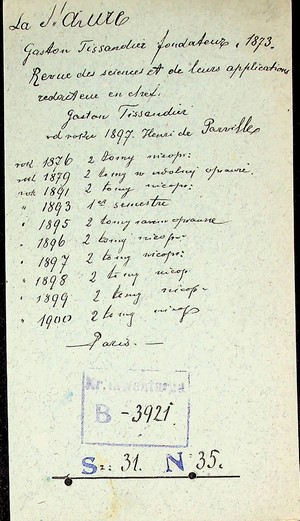 La Nature
Gaston Tissandier fondateur. 1873.
Revue des sciences et de leurs applications
redacteur en chef.
Gaston Tissandier
od roku 1897. Henri de Parville
rok 1876 2 tomy nieopr.
rok 1879 2 tomy w zdobnej oprawie.
rok 1891 2 tomy nieopr.
" 1893 1er semestre
" 1895 2 tomy razem oprawne
" 1896 2 tomy nieopr.
" 1897 2 tomy nieopr.
" 1898 2 tomy nieop.
" 1899 2 tomy nieop.
" 1900 2 tomy nieop
— Paris. —
Nr. inwentarza
B - 3921.
Sz: 31. N 35.